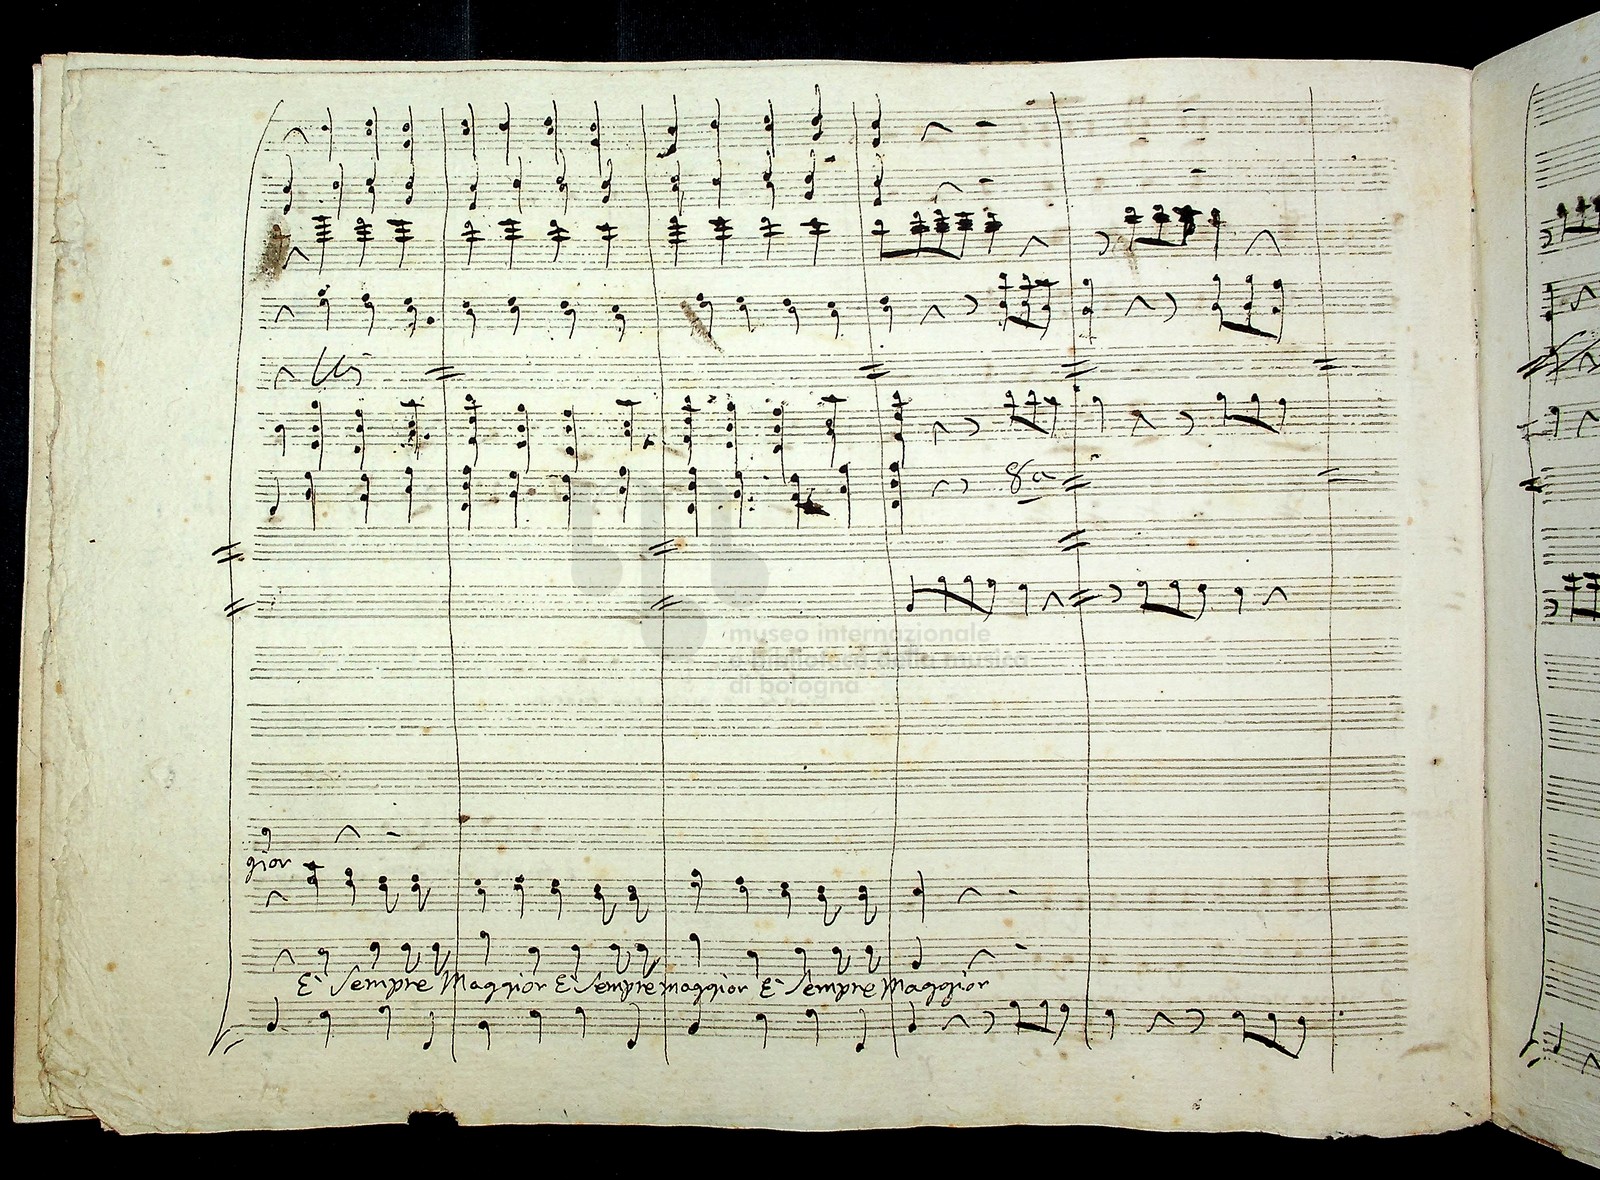 8a
museo internazionale
e biblioteca della musica
di bologna
gior
È sempre Maggior È sempre maggior È sempre Maggior